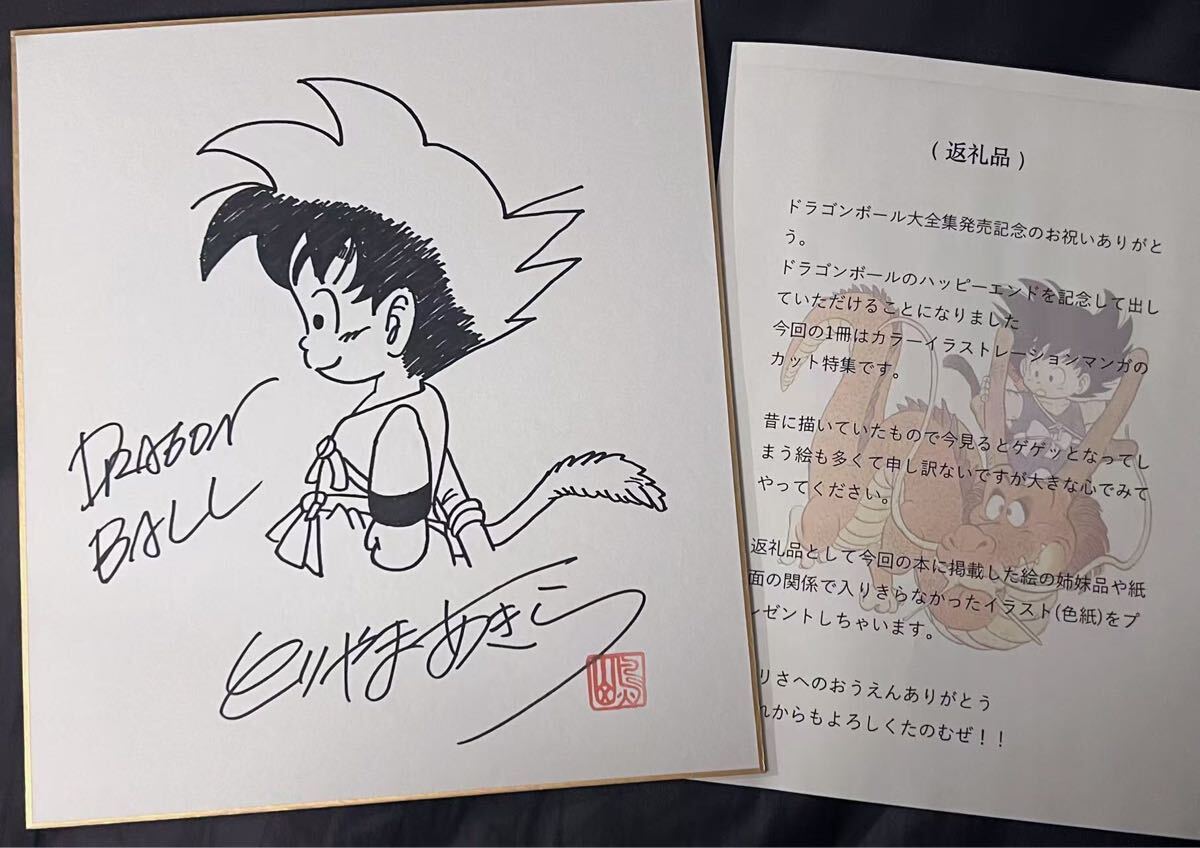 DRAGON
BALL
とりやまあきら
(返礼品)
ドラゴンボール大全集発売記念のお祝いありがと
う。
ドラゴンボールのハッピーエンドを記念して出し
ていただけることになりました
今回の1冊はカラーイラストレーションマンガの
カット特集です。
昔に描いていたもので今見るとゲゲッとなってし
まう絵も多くて申し訳ないですが大きな心でみて
やってください。
返礼品として今回の本に掲載した絵の姉妹品や紙
面の関係で入りきらなかったイラスト(色紙)をプ
レゼントしちゃいます。
りさへのおうえんありがとう
れからもよろしくたのむぜ!!